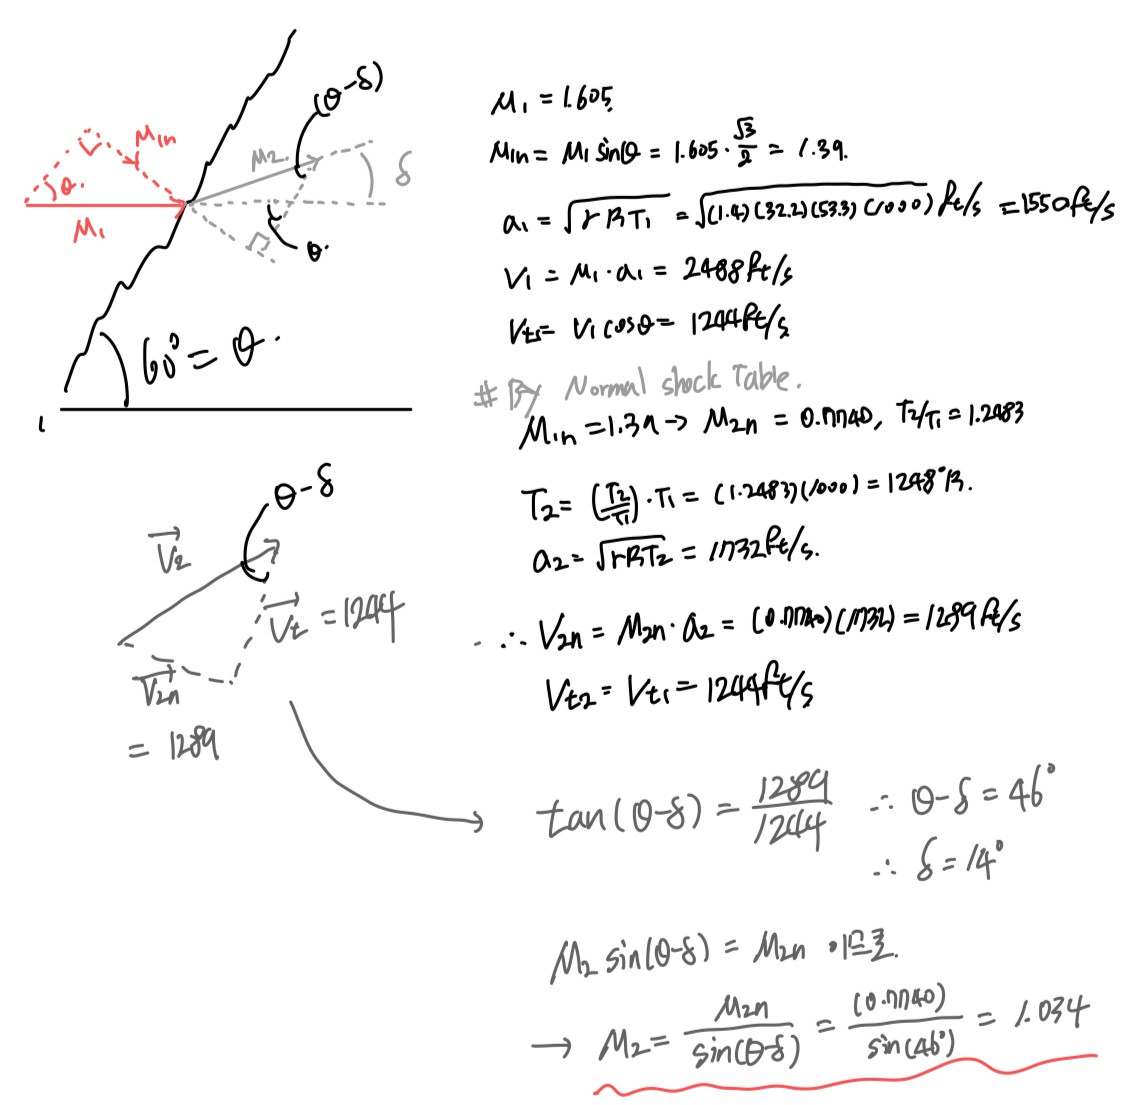 (θ-δ)
M1n
θ.
M1
M2.
δ
θ.
60°= θ.
M1 = 1.605
M1n = M1 sinθ = 1.605 · √3/2 = 1.39.
a1 = √(rRT1) = √((1.4)(32.2)(53.3)(1000)) ft/s = 1550ft/s
V1 = M1 · a1 = 2488ft/s
Vt1= V1 cosθ= 1244ft/s
# By Normal shock Table.
M1n =1.39 → M2n = 0.7740, T2/T1 = 1.2483
T2= (T2/T1) · T1 = (1.2483)(1000) = 1248°R.
a2= √(rRT2) = 1732ft/s.
∴ V2n = M2n · a2 = (0.7740)(1732) = 1289 ft/s
Vt2 = Vt1 = 1244ft/s
θ-δ
V2
Vt = 1244
V2n
= 1289
tan(θ-δ) = 1289/1244 ∴ θ-δ = 46°
∴ δ = 14°
M2 sin(θ-δ) = M2n 이므로.
→ M2= M2n/sin(θ-δ) = (0.7740)/sin(46°) = 1.034